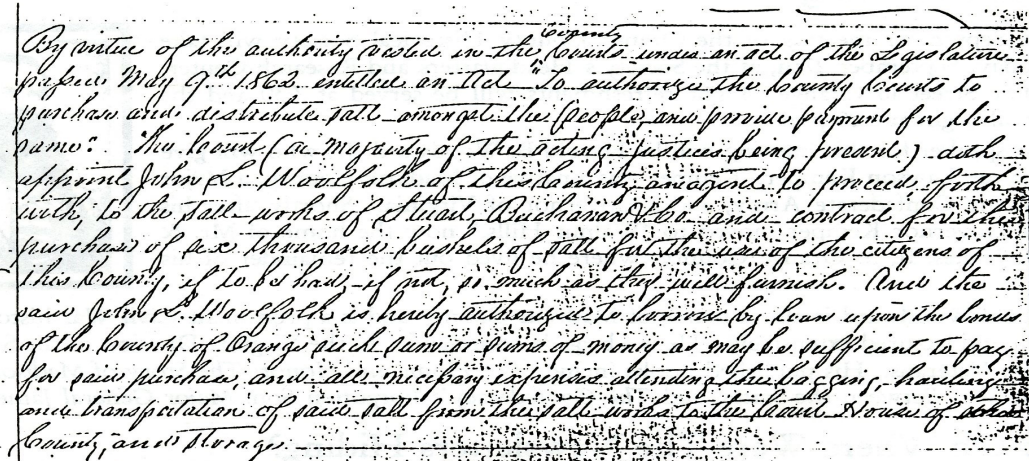 By virtue of the authority vested in the County Courts under an act of the Legislature
passed May 9th 1862 entitled an Act "To authorize the County Courts to
purchase and distribute salt amongst the people, and provide payment for the
same". This Court (a majority of the acting Justices being present) doth
appoint John L. Woolfolk of this County, an agent to proceed forth
with, to the salt works of Stuart, Buchanan & Co. and contract for the
purchase of six thousand bushels of salt for the use of the citizens of
this County, if to be had, if not, so much as they will furnish. And the
said John L. Woolfolk is hereby authorized to borrow by loan upon the bonds
of the County of Orange such sum or sums of money as may be sufficient to pay
for said purchase and all necessary expenses attending the bagging, hauling
and transportation of said salt from the salt works to the Court House of
County, and storage